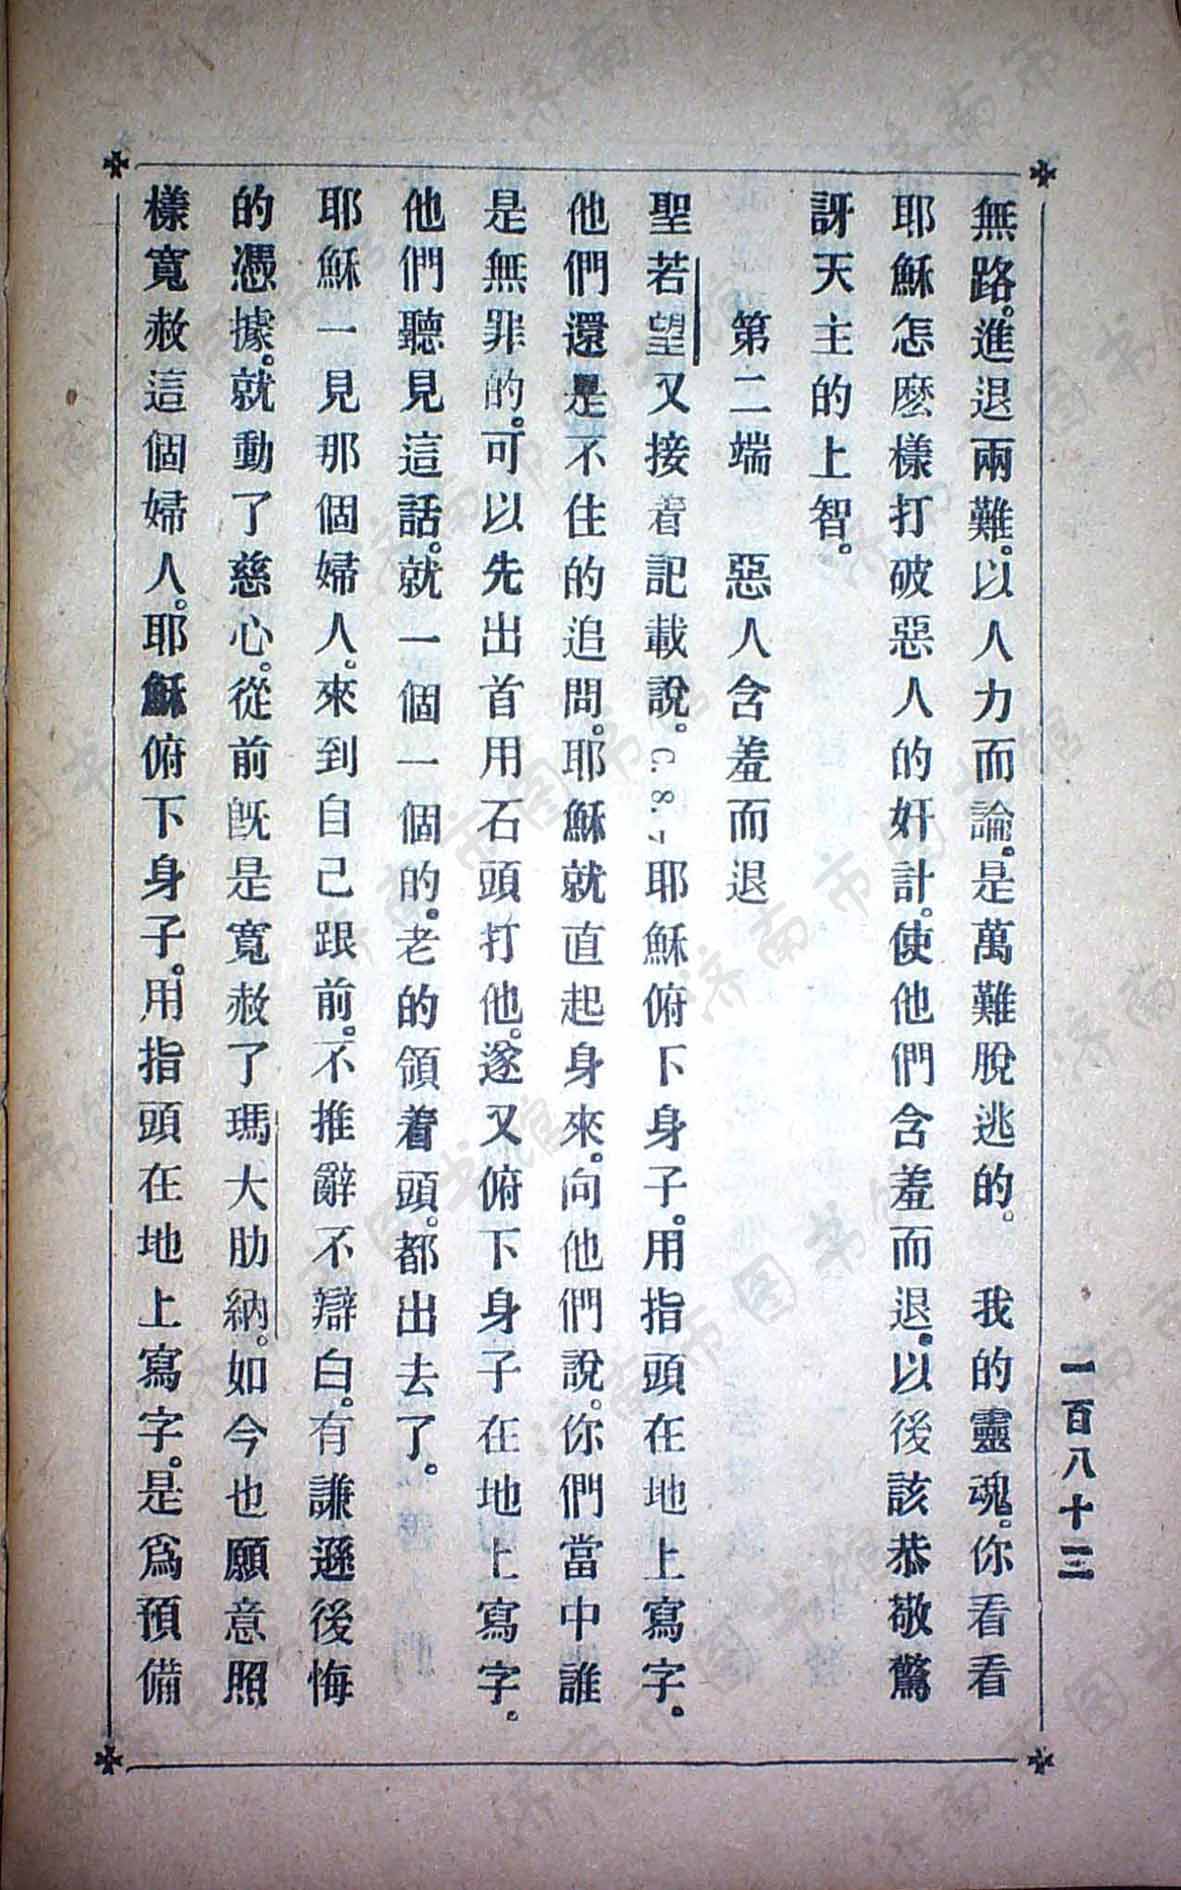 無路。進退兩難。以人力而論。是萬難脫逃的。　我的靈魂。你看看
耶穌怎麽樣打破惡人的奸計。使他們含羞而退。以後該恭敬驚
訝天主的上智。
第二端　惡人含羞而退
聖若望又接着記載說。C. 8. 7 耶穌俯下身子。用指頭在地上寫字。
他們還是不住的追問。耶穌就直起身來。向他們說。你們當中誰
是無罪的。可以先出首用石頭打他。遂又俯下身子在地上寫字。
他們聽見這話。就一個一個的。老的領着頭。都出去了。
耶穌一見那個婦人。來到自己跟前。不推辭不辯白。有謙遜後悔
的憑據。就動了慈心。從前既是寬赦了瑪大肋納。如今也願意照
樣寬赦這個婦人。耶穌俯下身子。用指頭在地上寫字。是爲預備
一百八十三
济南市图书馆